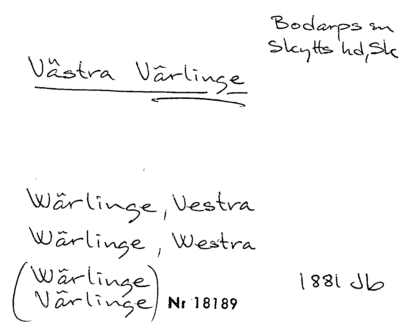 Bodarps sn
Skytts hd, Sk
Västra Värlinge
Wärlinge, Vestra
Wärlinge, Westra
(Wärlinge
Värlinge) Nr 18189
1881 Jb